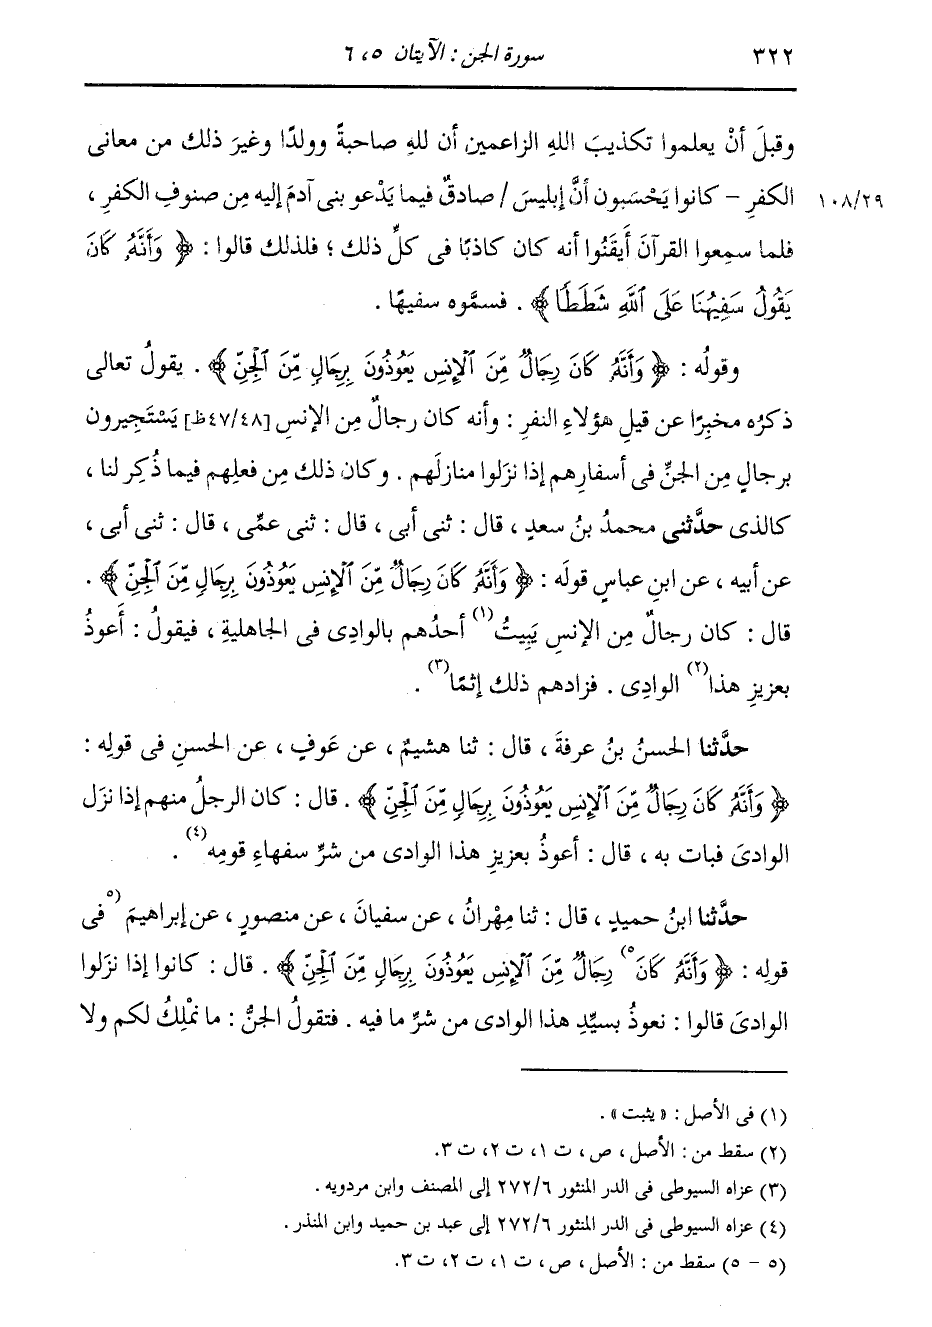 ٣٢٢ سورة الجن : الآيتان ٥ ، ٦
وقبلَ أنْ يعلموا تكذيبَ اللهِ الزاعمين أن للهِ صاحبةً وولدًا وغيرَ ذلك من معانى
١٠٨/٢٩ الكفرِ – كانوا يَحْسَبون أنَّ إبليسَ / صادقٌ فيما يَدْعو بنى آدمَ إليه مِن صنوفِ الكفرِ ،
فلما سمِعوا القرآنَ أَيقَنُوا أنه كان كاذبًا فى كلِّ ذلك ؛ فلذلك قالوا : ﴿ وَأَنَّهُ كَانَ
يَقُولُ سَفِيهُنَا عَلَى ٱللَّهِ شَطَطًا ﴾ . فسمَّوه سفيهًا .
وقولُه : ﴿ وَأَنَّهُ كَانَ رِجَالٌ مِّنَ ٱلْإِنسِ يَعُوذُونَ بِرِجَالٍ مِّنَ ٱلْجِنِّ ﴾ . يقولُ تعالى
ذكرُه مخبِرًا عن قيلِ هؤلاءِ النفرِ : وأنه كان رجالٌ مِن الإنسِ [٤٧/٤٨ظ] يَسْتَجِيرون
برجالٍ مِن الجنِّ فى أسفارِهم إذا نزَلوا منازلَهم . وكان ذلك مِن فعلِهم فيما ذُكِر لنا ،
كالذى حدَّثنى محمدُ بنُ سعدٍ ، قال : ثنى أبى ، قال : ثنى عمِّى ، قال : ثنى أبى ،
عن أبيه ، عن ابنِ عباسٍ قولَه : ﴿ وَأَنَّهُ كَانَ رِجَالٌ مِّنَ ٱلْإِنسِ يَعُوذُونَ بِرِجَالٍ مِّنَ ٱلْجِنِّ ﴾ .
قال : كان رجالٌ مِن الإنسِ يَبِيتُ(١) أحدُهم بالوادِى فى الجاهليةِ ، فيقولُ : أَعوذُ
بعزيزِ هذا(٢) الوادِى . فزادهم ذلك إثمًا(٣) .
حدَّثنا الحسنُ بنُ عرفةَ ، قال : ثنا هشيمٌ ، عن عَوفٍ ، عن الحسنِ فى قولِه :
﴿ وَأَنَّهُ كَانَ رِجَالٌ مِّنَ ٱلْإِنسِ يَعُوذُونَ بِرِجَالٍ مِّنَ ٱلْجِنِّ ﴾ . قال : كان الرجلُ منهم إذا نزَل
الوادىَ فبات به ، قال : أعوذُ بعزيزِ هذا الوادى من شرِّ سفهاءِ قومِه(٤) .
حدَّثنا ابنُ حميدٍ ، قال : ثنا مِهْرانُ ، عن سفيانَ ، عن منصورٍ ، عن إبراهيمَ (٥فى
قولِه : ﴿ وَأَنَّهُ كَانَ ٥) رِجَالٌ مِّنَ ٱلْإِنسِ يَعُوذُونَ بِرِجَالٍ مِّنَ ٱلْجِنِّ ﴾ . قال : كانوا إذا نزَلوا
الوادىَ قالوا : نعوذُ بسيِّدِ هذا الوادى من شرِّ ما فيه . فتقولُ الجنُّ : ما نمْلِكُ لكم ولا
(١) فى الأصل : « يثبت » .
(٢) سقط من : الأصل ، ص ، ت ١، ت ٢، ت ٣.
(٣) عزاه السيوطى فى الدر المنثور ٢٧٢/٦ إلى المصنف وابن مردويه .
(٤) عزاه السيوطى فى الدر المنثور ٢٧٢/٦ إلى عبد بن حميد وابن المنذر .
(٥ – ٥) سقط من : الأصل ، ص ، ت ١، ت ٢، ت ٣.